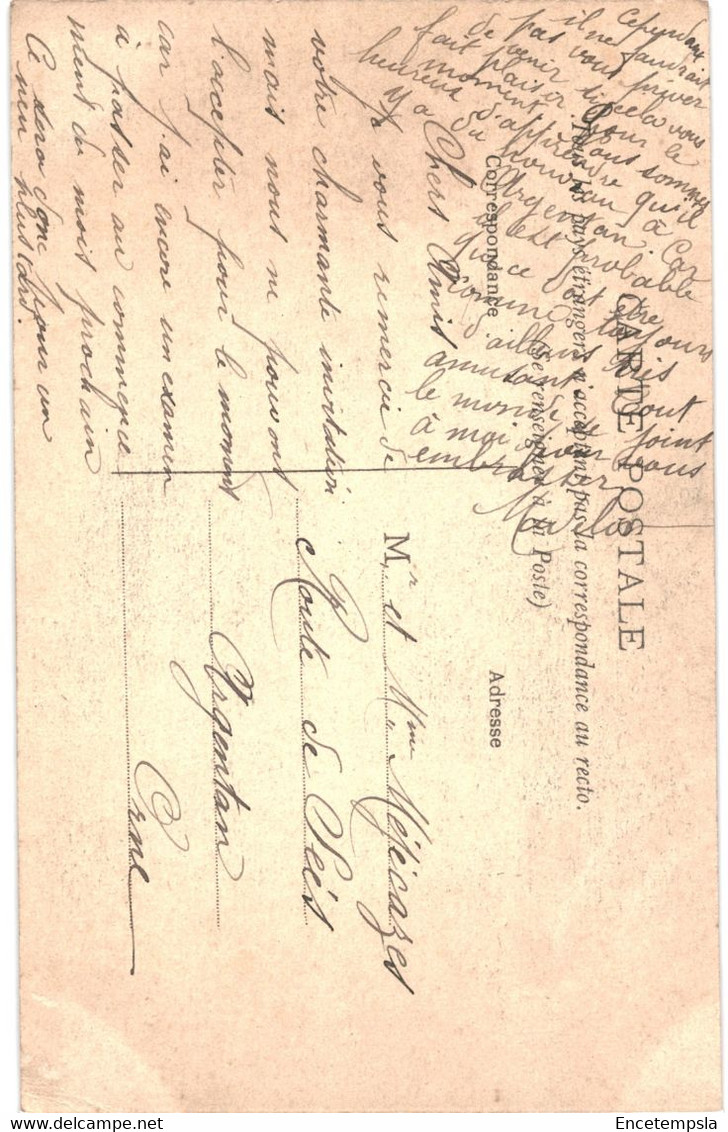 CARTE POSTALE
Tous les pays étrangers n'acceptant pas la correspondance au recto.
(Se renseigner à la Poste)
Correspondance
Adresse
Chers Amis
Je vous remercie de
votre charmante invitation
mais nous ne pouvons
l'accepter pour le moment
car j'ai encore un examen
à passer au commence
ment du mois prochain
Ce sera donc pour un
peu plus tard.
Cependant
il ne faudrait
pas vous priver
de venir si cela vous
fait plaisir. Pour le
moment nous sommes
heureux d'apprendre qu'il
y a du nouveau à
Argentan. Car
il est probable
que ce doit être
toujours
d'ailleurs très
amusant. Tout
le monde se joint
à moi pour vous
embrasser
M. et Mme Méficazes
Route de Sées
Argentan
Orne
Encetempsla